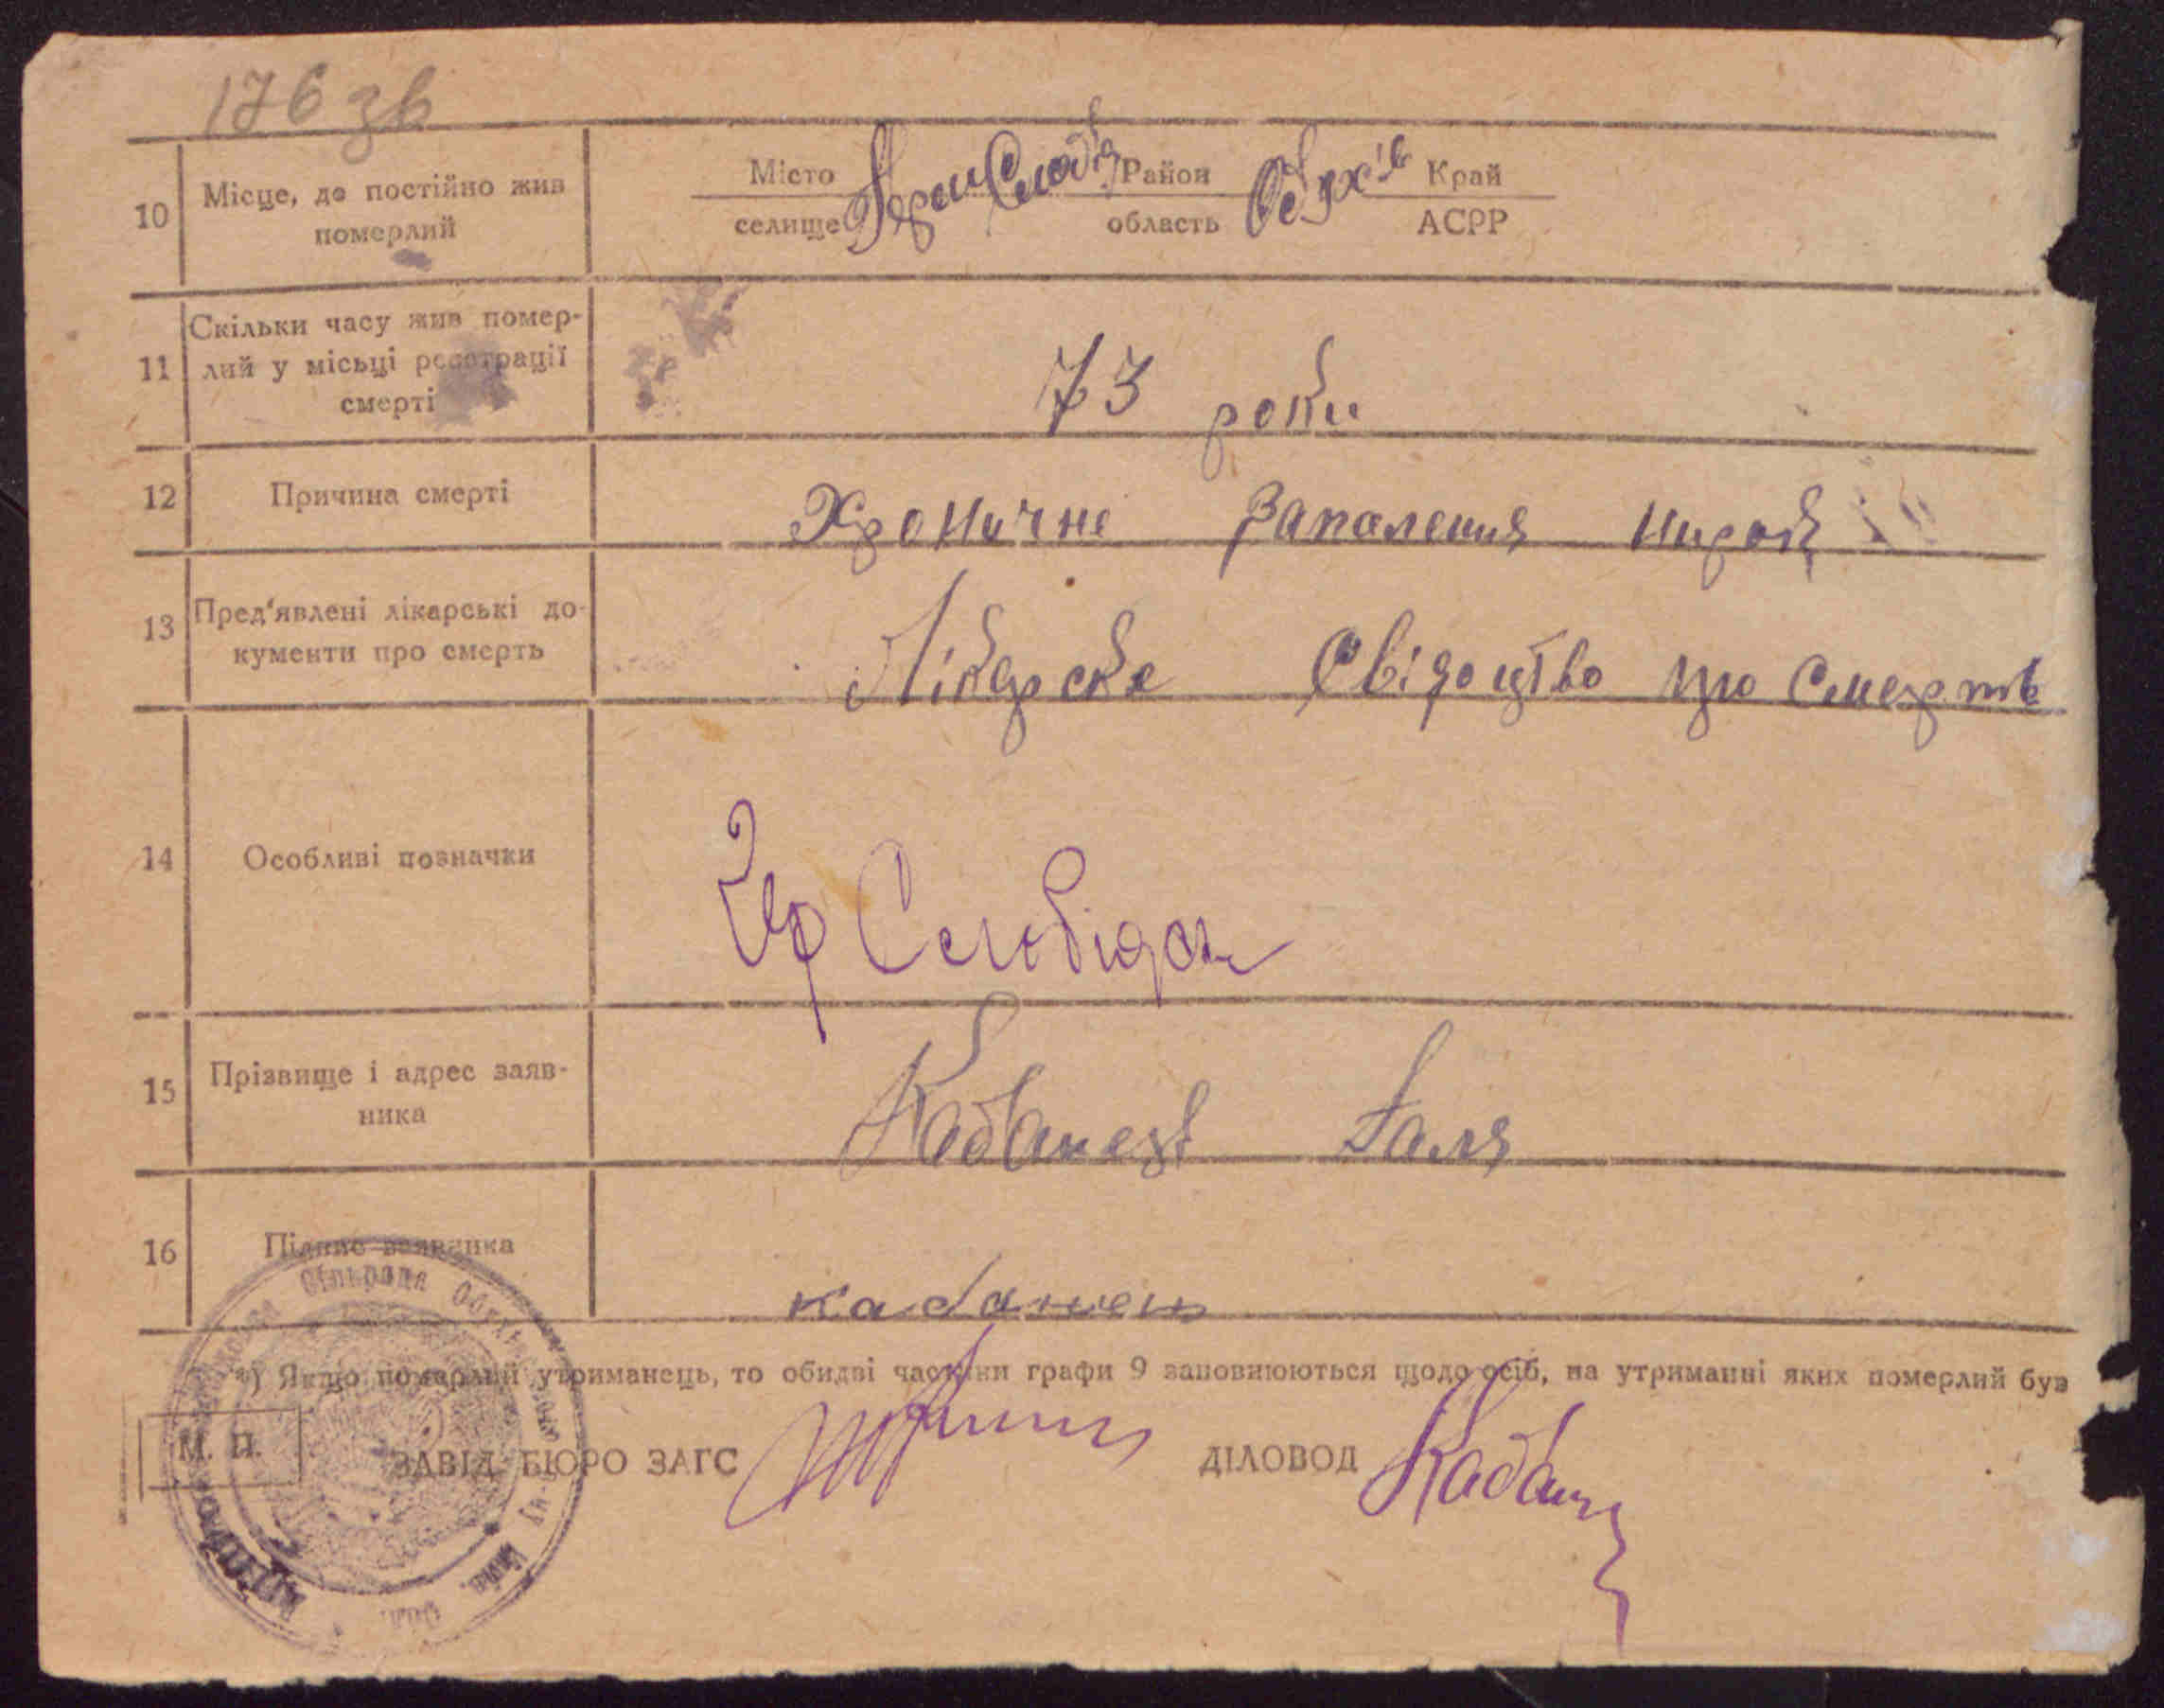 176 зв
10 Місце, де постійно жив померлий
Місто Район Край
селище область АСРР
Герм Слобід Обухів
11 Скільки часу жив помер-
лий у місьці реєстрації
смерті
73 роки
12 Причина смерті Хроничне Запалення нирок
13 Пред'явлені лікарські до-
кументи про смерть
Лікарске Свідоцтво про Смерть
14 Особливі позначки
Слобідка
15 Прізвище і адрес заяв-
ника
Кабанець Галя
16 Підпис заявника
кабанець
*) Якщо померлий утриманець, то обидві частини графи 9 заповнюються щодо осіб, на утриманні яких померлий був
М. П. ЗАВІД. БЮРО ЗАГС ДІЛОВОД Кабанец